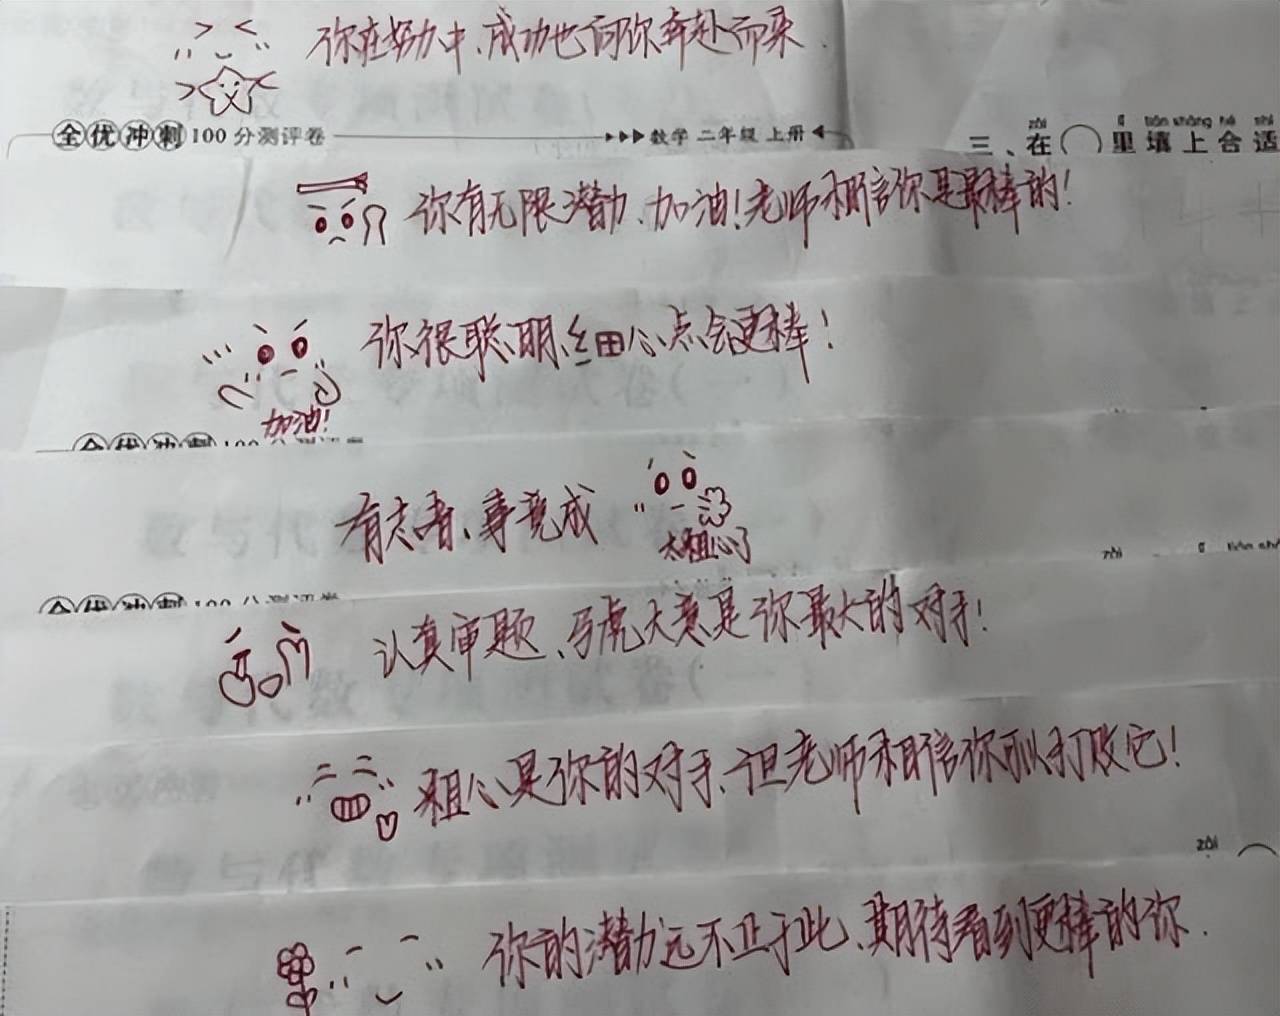 你在努力中、成功也向你奔赴而来.
全优冲刺100分测评卷
数学 二年级 上册
zài lǐ tián shàng hé shì
三、在( )里填上合适
你有无限潜力、加油!老师相信你是最棒的!
你很聪明,细心点会更棒!
加油!
全优冲刺100分测评卷
有志者、事竟成
太粗心了
zài lǐ tián shàng
全优冲刺100分测评卷
认真审题、马虎大意是你最大的对手!
粗心是你的对手、但老师相信你可以打败它!
zài
你的潜力远不止于此、期待看到更棒的你.